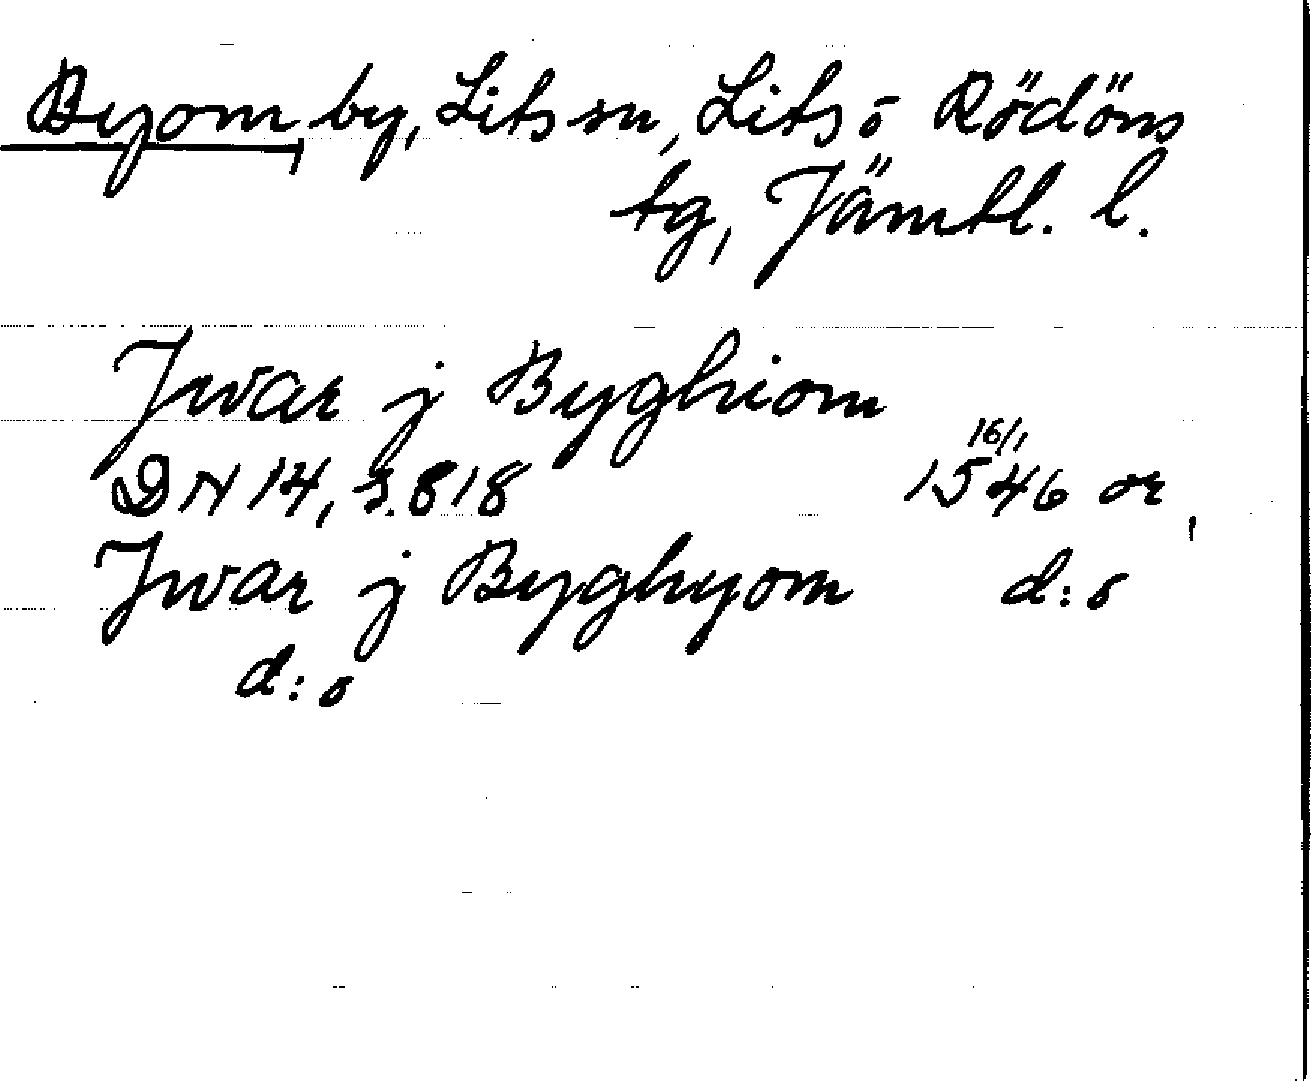 Byom, by, Lits sn, Lits o Rödöns
tg, Jämtl. l.
Jwar j Byghiom
16/1
DN 14, s. 818 1546 or,
Jwar j Byghyom d:o
d:o